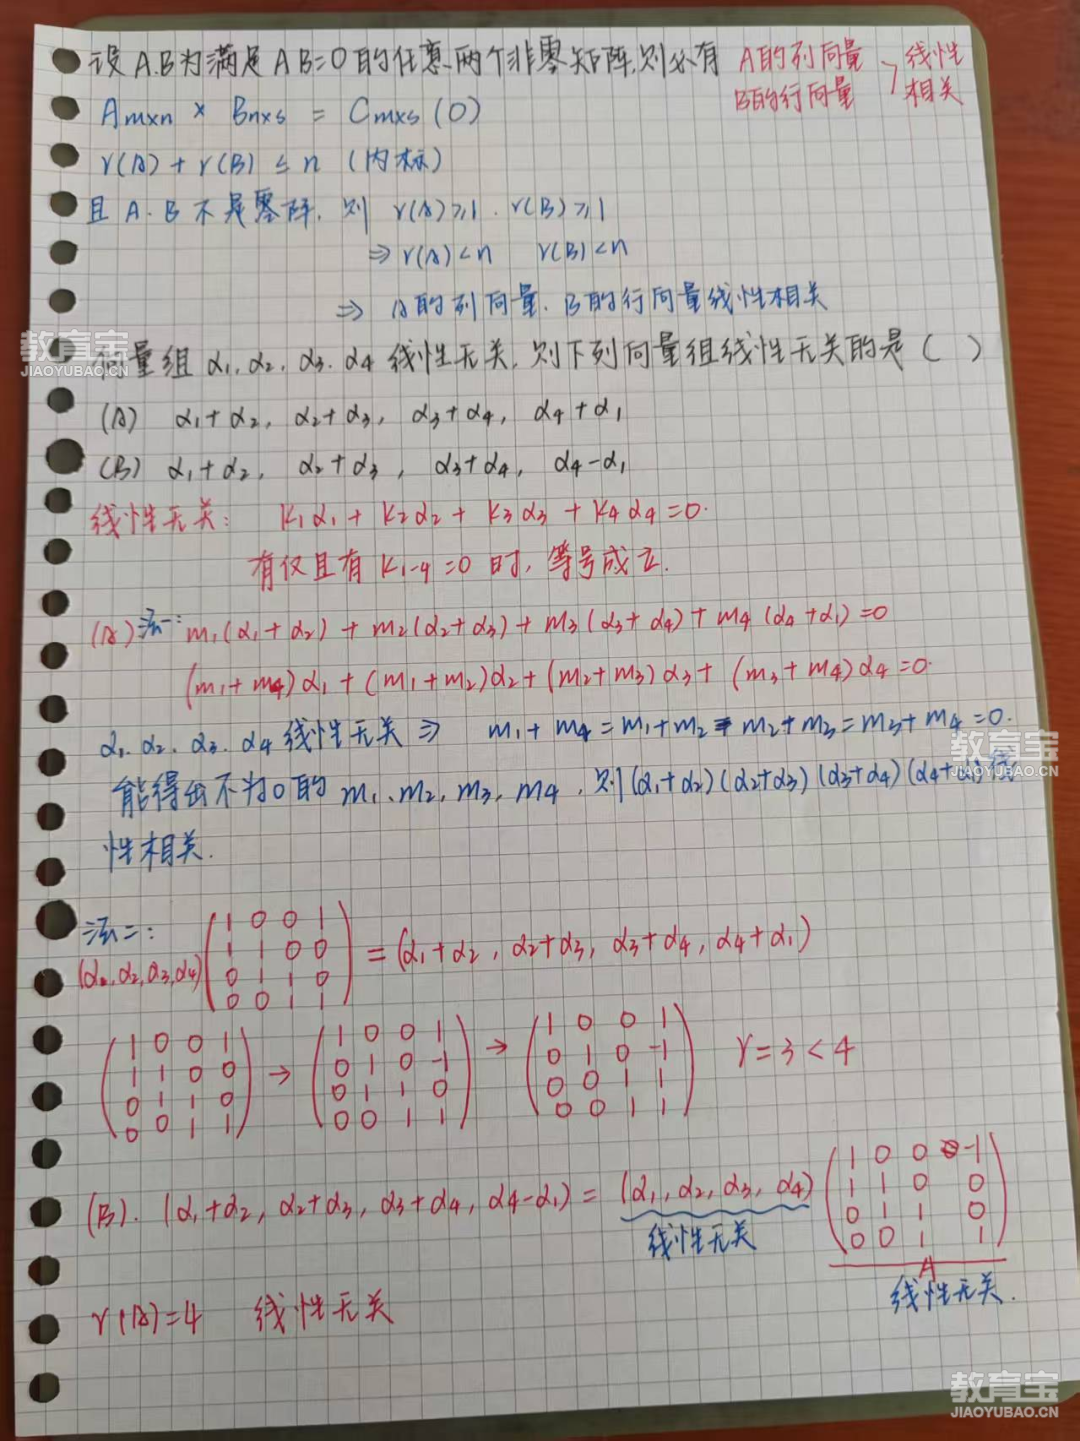 设A.B为满足AB=0的任意两个非零矩阵,则必有 A的列向量 线性
B的行向量 相关
Am×n × Bn×s = Cm×s (0)
r(A) + r(B) ≤ n (内标)
且A.B不是零阵,则 r(A)≥1. r(B)≥1
⇒ r(A)<n r(B)<n
⇒ A的列向量.B的行向量线性相关
教育宝
JIAOYUBAO.CN
向量组 α1,α2,α3,α4 线性无关,则下列向量组线性无关的是( )
(A) α1+α2, α2+α3, α3+α4, α4+α1
(B) α1+α2, α2+α3, α3+α4, α4-α1
线性无关: k1α1 + k2α2 + k3α3 + k4α4=0.
有仅且有 k1-4=0 时,等号成立.
(A)法一: m1(α1+α2) + m2(α2+α3) + m3(α3+α4) + m4(α4+α1)=0
(m1+m4)α1 + (m1+m2)α2 + (m2+m3)α3 + (m3+m4)α4=0.
α1.α2.α3.α4 线性无关 ⇒ m1+m4=m1+m2=m2+m3=m3+m4=0.
教育宝
JIAOYUBAO.CN
能得出不为0的 m1、m2,m3,m4,则(α1+α2)(α2+α3)(α3+α4)(α4+α1)线
性相关.
法二:
(α1,α2,α3,α4) = (α1+α2, α2+α3, α3+α4, α4+α1)
1 0 0 1
1 1 0 0
0 1 1 0
0 0 1 1
1 0 0 1 → 1 0 0 1 → 1 0 0 1 r=3<4
1 1 0 0 0 1 0 -1 0 1 0 -1
0 1 1 0 0 1 1 0 0 0 1 1
0 0 1 1 0 0 1 1 0 0 1 1
(B). (α1+α2, α2+α3, α3+α4, α4-α1) = (α1,α2,α3,α4)
1 0 0 -1
1 1 0 0
0 1 1 0
0 0 1 1
线性无关 A
线性无关.
r(A)=4 线性无关
教育宝
JIAOYUBAO.CN